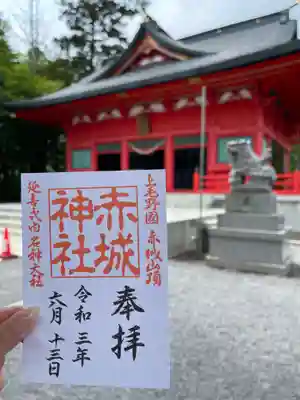 上毛野國 赤城山頂
奉拝
赤城神社
令和三年
六月十三日
延喜式内 名神大社